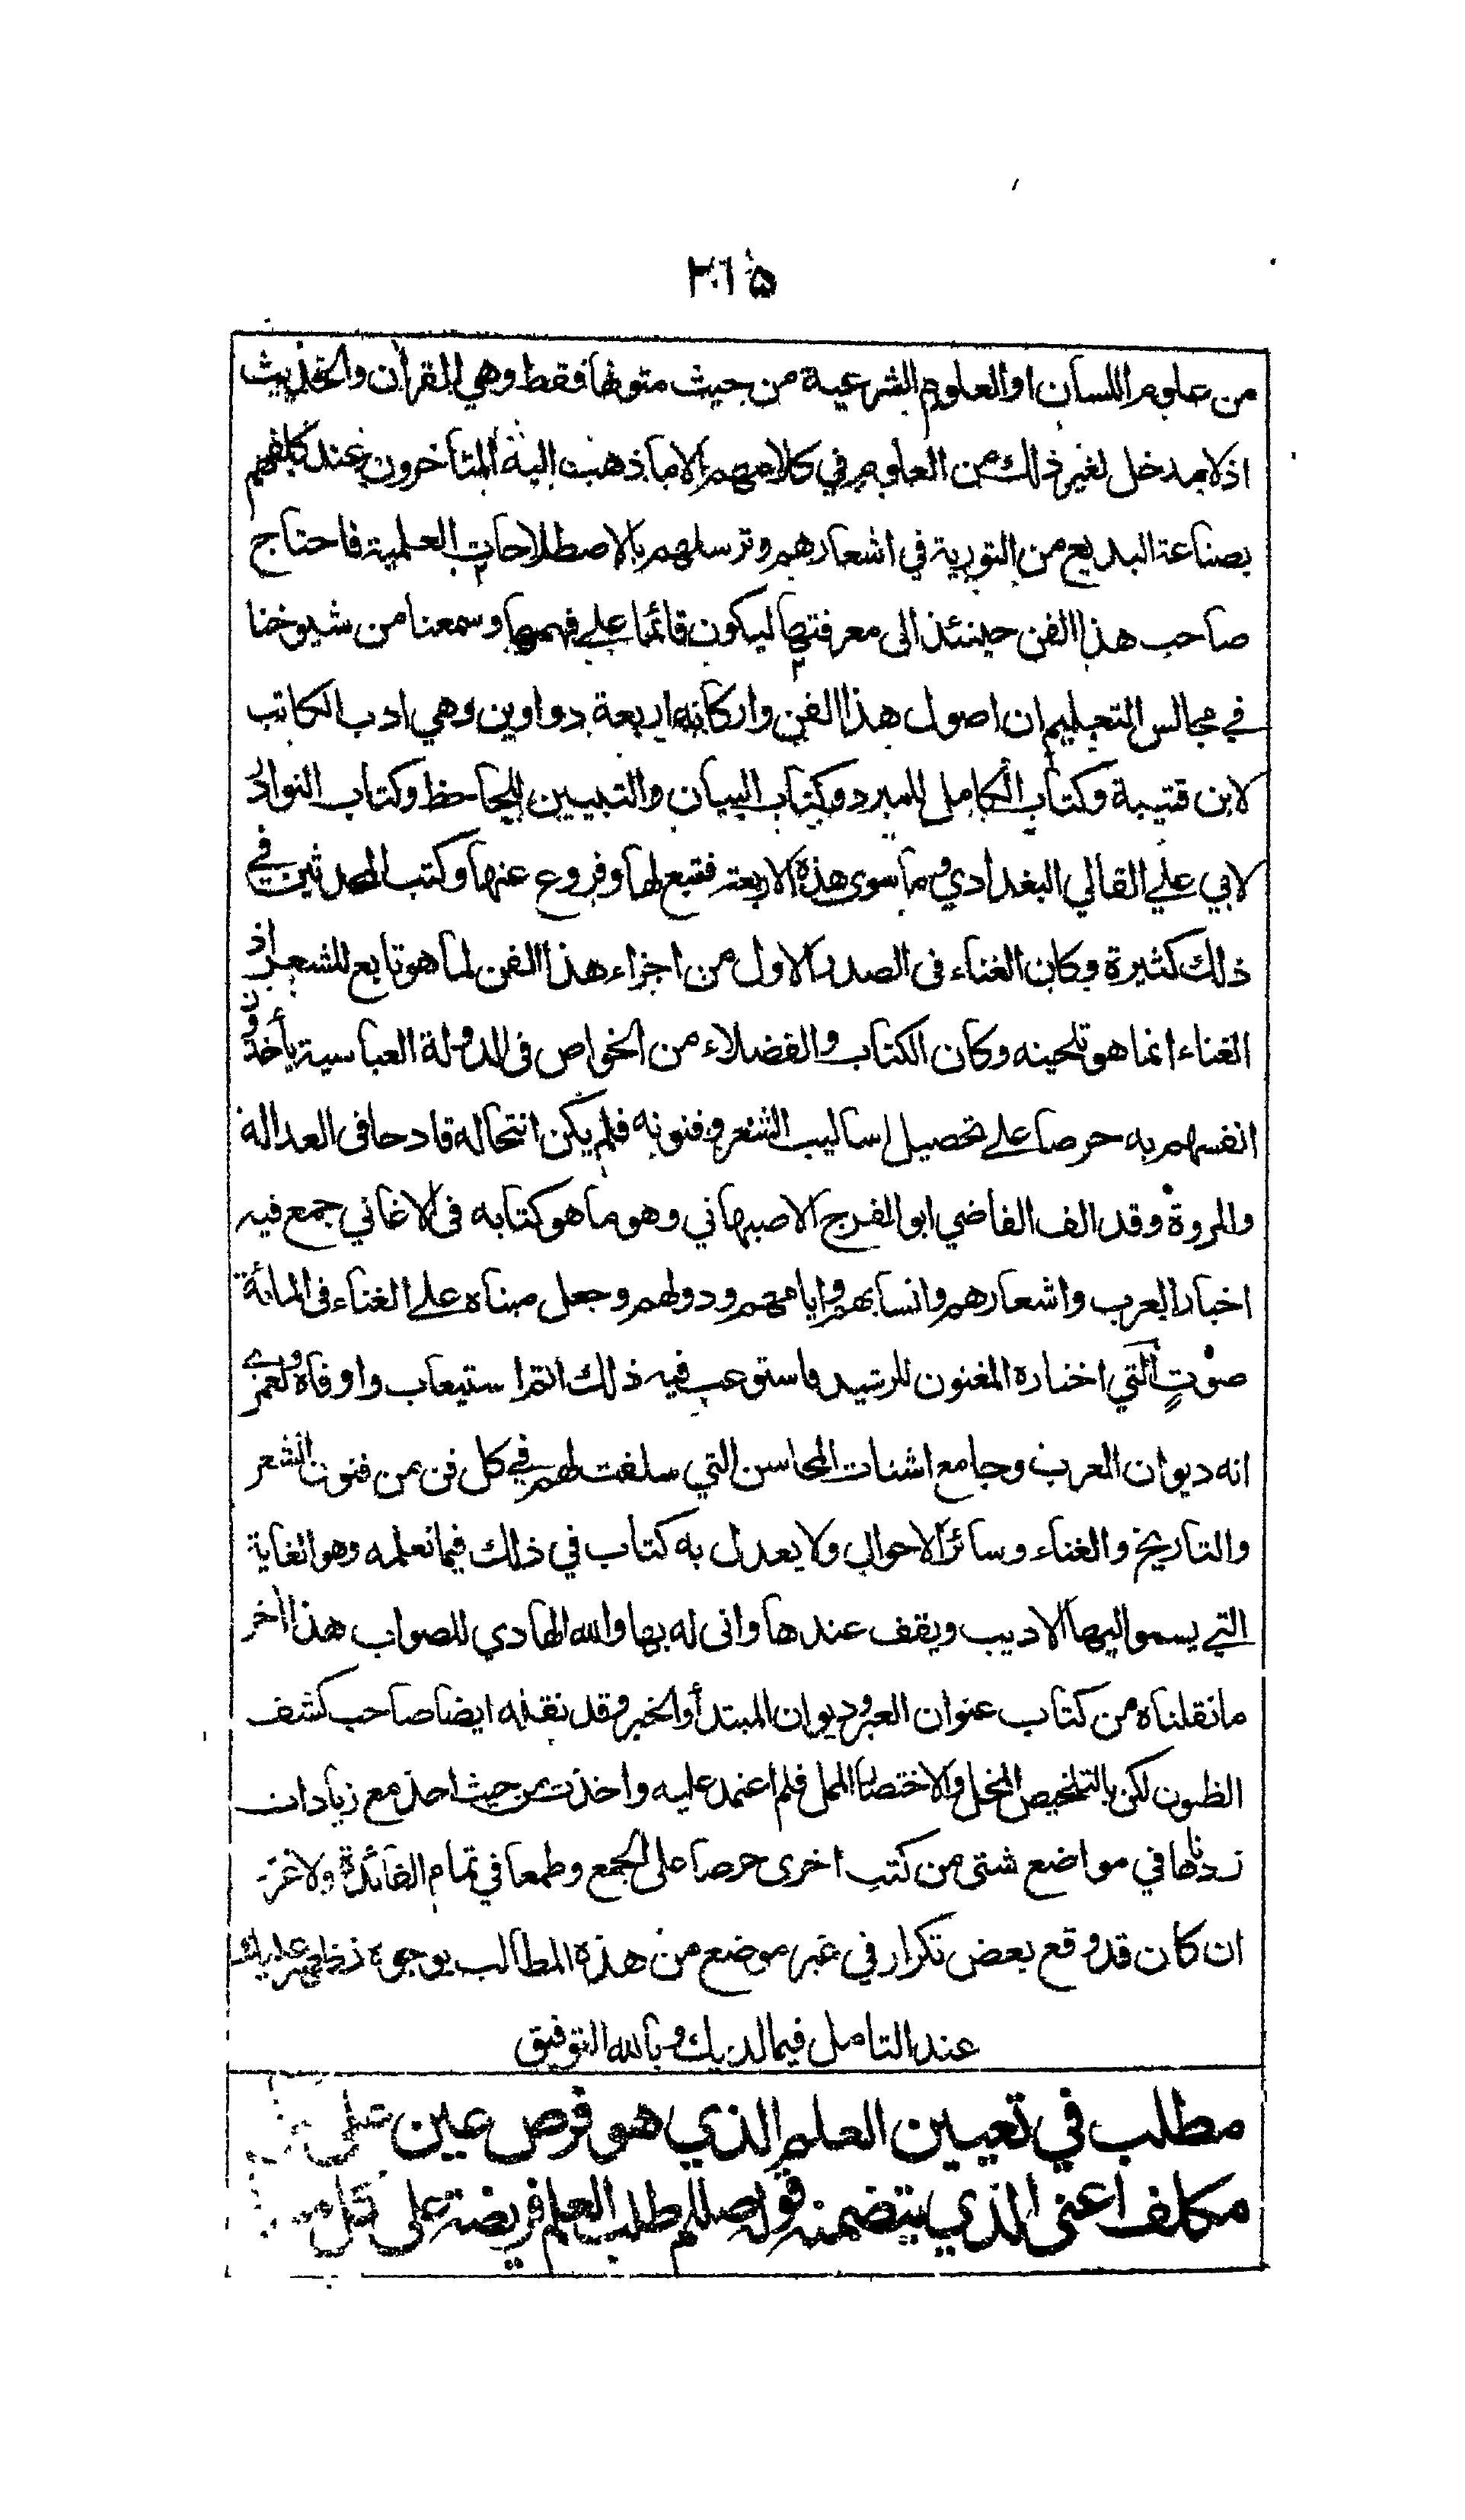 ٢١٥
من علوم اللسان او العلوم الشرعية من حيث متونها فقط وهي القرآن والحديث
اذ لا مدخل لغير ذلك من العلوم في كلامهم الا ما ذهب اليه المتأخرون عند كلفهم
بصناعة البديع من التورية في اشعارهم وترسلهم بالاصطلاحات العلمية فاحتاج
صاحب هذا الفن حينئذ الى معرفتها ليكون قائما على فهمها وسمعنا من شيوخنا
في مجالس التعليم ان اصول هذا الفن واركانه اربعة دواوين وهي ادب الكاتب
لابن قتيبة وكتاب الكامل للمبرد وكتاب البيان والتبيين للجاحظ وكتاب النوادر
لابي علي القالي البغدادي وما سوى هذه الاربعة فتبع لها وفروع عنها وكتب المحدثين في
ذلك كثيرة وكان الغناء في الصدر الاول من اجزاء هذا الفن لما هو تابع للشعر اذ
الغناء انما هو تلحينه وكان الكتاب والفضلاء من الخواص في الدولة العباسية يأخذون
انفسهم به حرصا على تحصيل اساليب الشعر وفنونه فلم يكن انتحاله قادحا في العدالة
والمروة وقد الف القاضي ابو الفرج الاصبهاني وهو ما هو كتابه في الاغاني جمع فيه
اخبار العرب واشعارهم وانسابهم وايامهم ودولهم وجعل مبناه على الغناء في المائة
صوتٍ التي اختاره المغنون للرشيد فاستوعب فيه ذلك اتم استيعاب واوفاه ولعمري
انه ديوان العرب وجامع اشتات المحاسن التي سلفت لهم في كل فن من فنون الشعر
والتاريخ والغناء وسائر الاحوال ولا يعدل به كتاب في ذلك فيما نعلمه وهو الغاية
التي يسمو اليها الاديب ويقف عندها وانى له بها والله الهادي للصواب هذا اخر
ما نقلناه من كتاب عنوان العبر وديوان المبتدأ والخبر وقد نقله ايضا صاحب كشف
الظنون لكن بالتلخيص المخل والاختصار الممل فلم اعتمد عليه واخذت من حيث اخذ مع زيادات
زدناها في مواضع شتى من كتب اخرى حرصا على الجمع وطمعا في تمام الفائدة ولا غرو
ان كان قد وقع بعض تكرار في غير موضع من هذه المطالب بوجوه تظهر عليك
عند التامل فيما لديك وبالله التوفيق
مطلب في تعيين العلم الذي هو فرض عين على
مكلف اعني الذي يتضمنه قوله صللم طلب العلم فريضة على كل